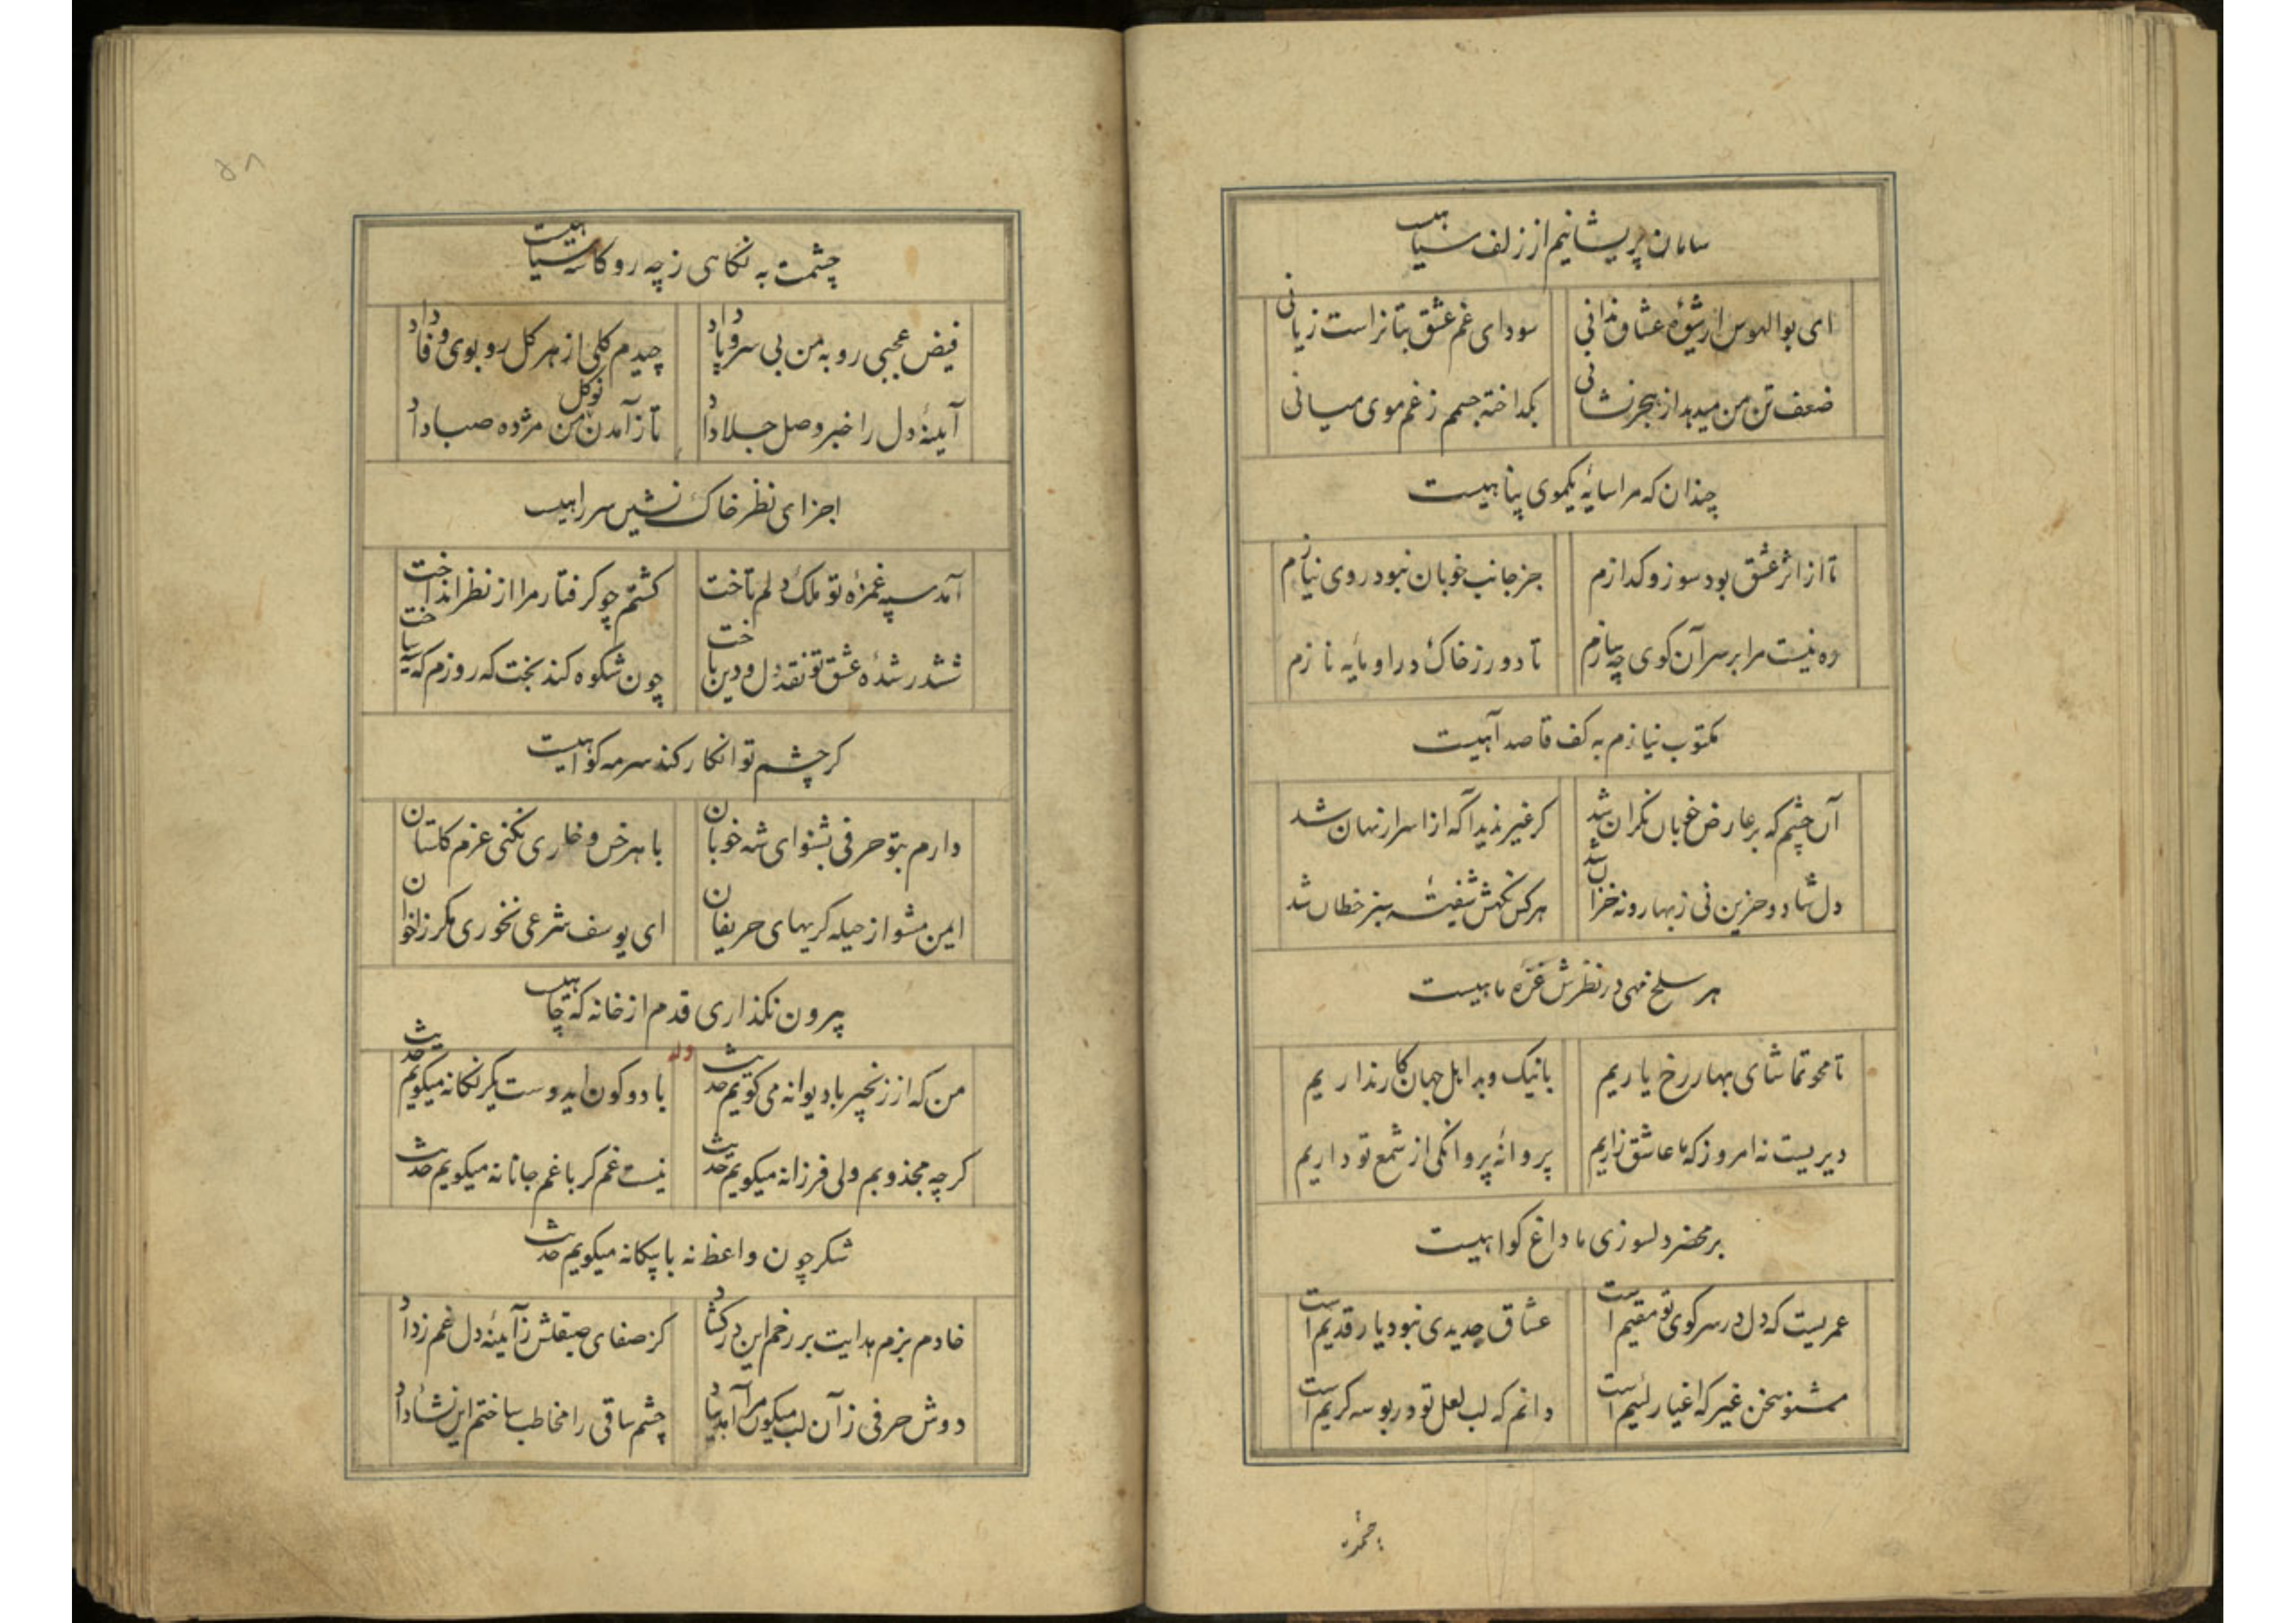 سامان پریشانیم از زلف سیاهیست
ای بوالهوس از شیوهٔ عشاق ندانی سودای غم عشق بتانراست زیانی
ضعف تن من میدهد از هجر نشانی بگداخته جسمم ز غم موی میانی
چندان که مرا سایهٔ یکموی پناهیست
تا از اثر عشق بود سوز و گدازم جز جانب خوبان نبود روی نیازم
ره نیست مرا بر سر آن کوی چه سازم تا دورز خاک در او مایه نازم
مکتوب نیازم به کف قاصد آهیست
آن چشم که بر عارض خوبان نگران شد کر غیر ندید آگه از اسرار نهان شد
دل شاد و حزین نی ز بهار و نه خزان شد هر کس نگهش شیفتهٔ سبز خطان شد
هر سلخ مهی در نظرش غرّه ماهیست
تا محو تماشای بهار رخ یاریم با نیک و بد اهل جهان کار نداریم
دیریست نه امروز که ما عاشق زاریم پروانهٔ پروانکی از شمع تو داریم
بر محضر دلسوزی ما داغ کواهیست
عمریست که دل در سر کوی تو مقیم است عشاق جدیدی نبود یار قدیم است
مشنو سخن غیر که اغیار لئیم است دانم که لب لعل تو در بوسه کریم است
چشمت
۵۸
چشمت به نکاهی ز چه رو کاسه سیاهیست
فیض عجبی رو به من بی سر و پا داد چیدم کلی از هر کل رو بوی وفا داد
آینهٔ دل را خبر وصل جلا داد تا ز آمدن نوکل من مژده صبا داد
اجزای نظر خاک نشین سر راهیست
آمد سپه غمزهٔ تو ملک دلم تاخت کشتم چو کرفتار مرا از نظر انداخت
ششدر شدهٔ عشق تو نقد دل و دین باخت چون شکوه کند بخت که روزم که سیه ساخت
کر چشم تو انکار کند سرمه کواهیست
دارم بتو حرفی بشنو ای شه خوبان با هر خس و خاری نکنی عزم کلستان
ایمن مشو از حیله کریهای حریفان ای یوسف شرعی نخوری مکر ز اخوان
بیرون نکذاری قدم از خانه که چاهیست
وله
من که از زنجیر با دیوانه می کویم حدیث با دو کون ای دوست یکرنکانه میکویم حدیث
کرچه مجذوبم ولی فرزانه میکویم حدیث نیست غم کر با غم جانانه میکویم حدیث
شکر چون واعظ نه با بیکانه میکویم حدیث
خادم بزم هدایت بر رخم این در کشاد کز صفای صیقلش ز آینهٔ دل غم زداد
دوش حرفی ز آن لب میکون مرا آمد بیاد چشم ساقی را مخاطب ساختم این نشأ داد